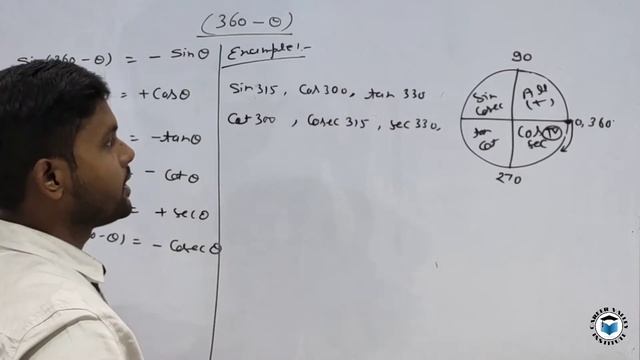 (360-θ)
Sin(360-θ) = - Sinθ
= + Cosθ
= - tanθ
- Cotθ
= + secθ
-θ) = - Cosecθ
Example:-
Sin 315, Cos 300, tan 330
Cot 300, Cosec 315, sec 330,
90
Sin
Cosec
All
(+)
0, 360
tan
Cot
Cos
sec
270
CAREER VALLEY INSTITUTE